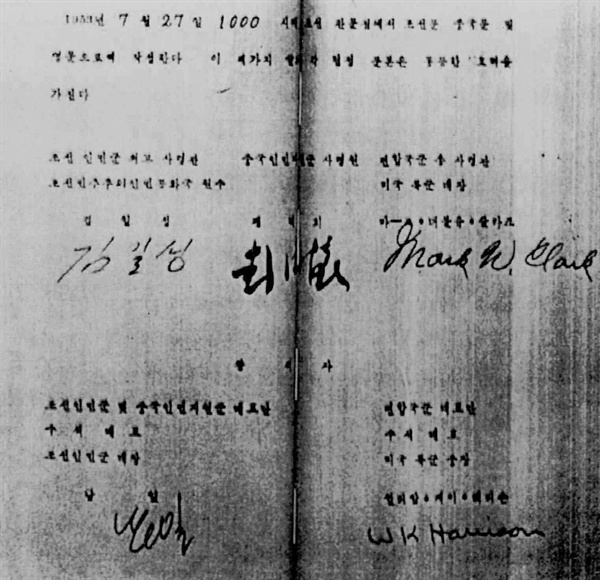 1953년 7 월 27 일 1000 시에 조선 판문점에서 조선문 중국문 및
영문으로써 작성한다 이 세가지 협정 문본은 동등한 효력을
가진다
조선 인민군 최고 사령관 중국인민지원군 사령원 련합국군 총 사령관
조선민주주의인민공화국 원수 미국 륙군 대장
김 일 성 팽 덕 회 마-크·더블유·클라크
김일성 彭德怀 Mark W. Clark
참 석 자
조선인민군 및 중국인민지원군 대표단 련합국군 대표단
수 석 대 표 수 석 대 표
조선인민군 대장 미국 륙군 중장
남 일 윌리암·케이·해리슨
남일 WK Harrison